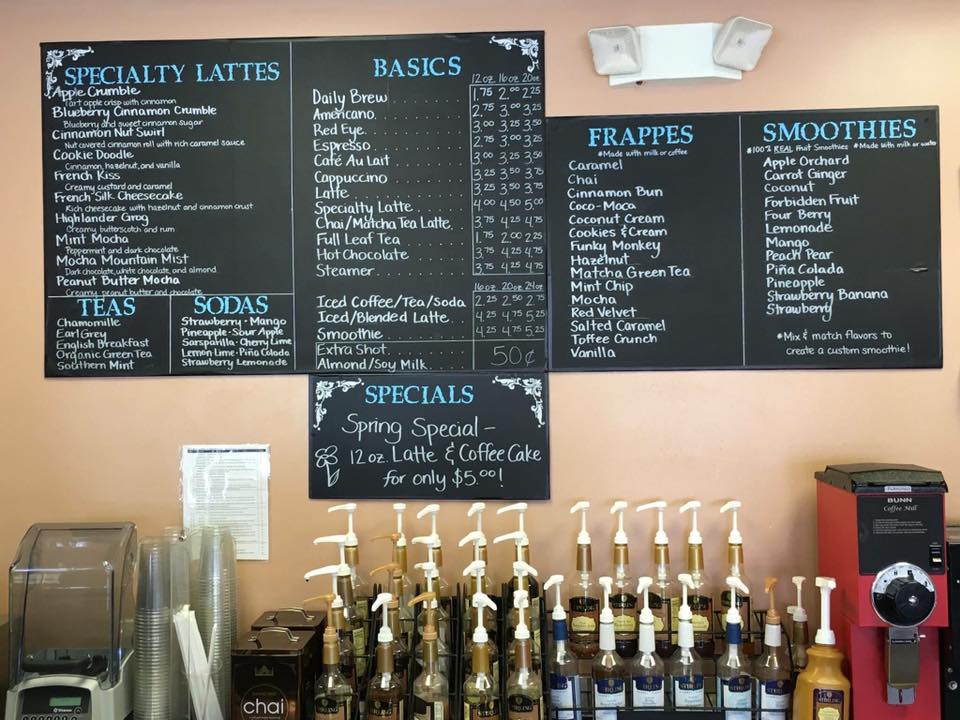 SPECIALTY LATTES
Apple Crumble
Tart apple crisp with cinnamon
Blueberry Cinnamon Crumble
Blueberry and sweet cinnamon sugar
Cinnamon Nut Swirl
Nut covered cinnamon roll with rich caramel sauce
Cookie Doodle
Cinnamon, hazelnut, and vanilla
French Kiss
Creamy custard and caramel
French Silk Cheesecake
Rich cheesecake with hazelnut and cinnamon crust
Highlander Grog
Creamy butterscotch and rum
Mint Mocha
Peppermint and dark chocolate
Mocha Mountain Mist
Dark chocolate, white chocolate, and almond
Peanut Butter Mocha
Creamy peanut butter and chocolate
TEAS
Chamomille
Earl Grey
English Breakfast
Organic Green Tea
Southern Mint
SODAS
Strawberry · Mango
Pineapple · Sour Apple
Sarsparilla · Cherry Lime
Lemon Lime · Piña Colada
Strawberry Lemonade
BASICS
12 oz 16 oz 20 oz
Daily Brew 1.75 2.00 2.25
Americano 2.75 3.00 3.25
Red Eye 3.00 3.25 3.50
Espresso 2.75 3.00 3.25
Café Au Lait 3.00 3.25 3.50
Cappuccino 3.25 3.50 3.75
Latte 3.25 3.50 3.75
Specialty Latte 4.00 4.50 5.00
Chai/Matcha Tea Latte 3.75 4.25 4.75
Full Leaf Tea 1.75 2.00 2.25
Hot Chocolate 3.75 4.25 4.75
Steamer 3.75 4.25 4.75
16 oz 20 oz 24 oz
Iced Coffee/Tea/Soda 2.25 2.50 2.75
Iced/Blended Latte 4.25 4.75 5.25
Smoothie 4.25 4.75 5.25
Extra Shot
Almond/Soy Milk 50¢
FRAPPES
*Made with milk or coffee
Caramel
Chai
Cinnamon Bun
Coco-Moca
Coconut Cream
Cookies & Cream
Funky Monkey
Hazelnut
Matcha Green Tea
Mint Chip
Mocha
Red Velvet
Salted Caramel
Toffee Crunch
Vanilla
SMOOTHIES
*100% REAL Fruit Smoothies *Made with milk or water
Apple Orchard
Carrot Ginger
Coconut
Forbidden Fruit
Four Berry
Lemonade
Mango
Peach Pear
Piña Colada
Pineapple
Strawberry Banana
Strawberry
*Mix & match flavors to
create a custom smoothie!
SPECIALS
Spring Special -
12 oz. Latte & Coffee Cake
for only $5.00!
BUNN
Coffee Mill
chai